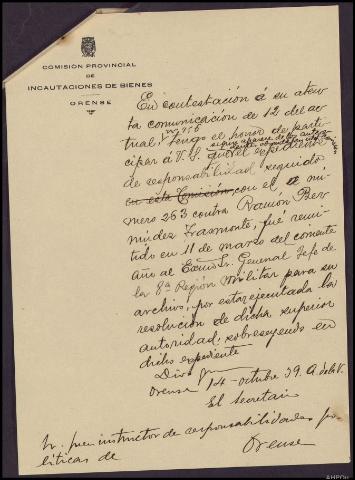 COMISIÓN PROVINCIAL
DE
INCAUTACIONES DE BIENES
ORENSE
En contestación á su aten-
ta comunicación de 12 del ac-
tual, nº 756 tengo el honor de parti-
cipar á V. S. que el expediente
de responsabilidad seguido
en esta Comisión con el nú-
mero 263 contra Ramón Ber
múdez Trasmonte, fué remi-
tido en 11 de marzo del corriente
año al Excmo Sr. General Jefe de
la 8ª Región Militar para su
archivo, por estar ejecutada la
resolución de dicha superior
autoridad, sobreseyendo en
dicho expediente
Dios
Orense 14 - octubre 39. A. de la V.
El Secretario
Sr. juez instructor de responsabilidades po
líticas de Orense